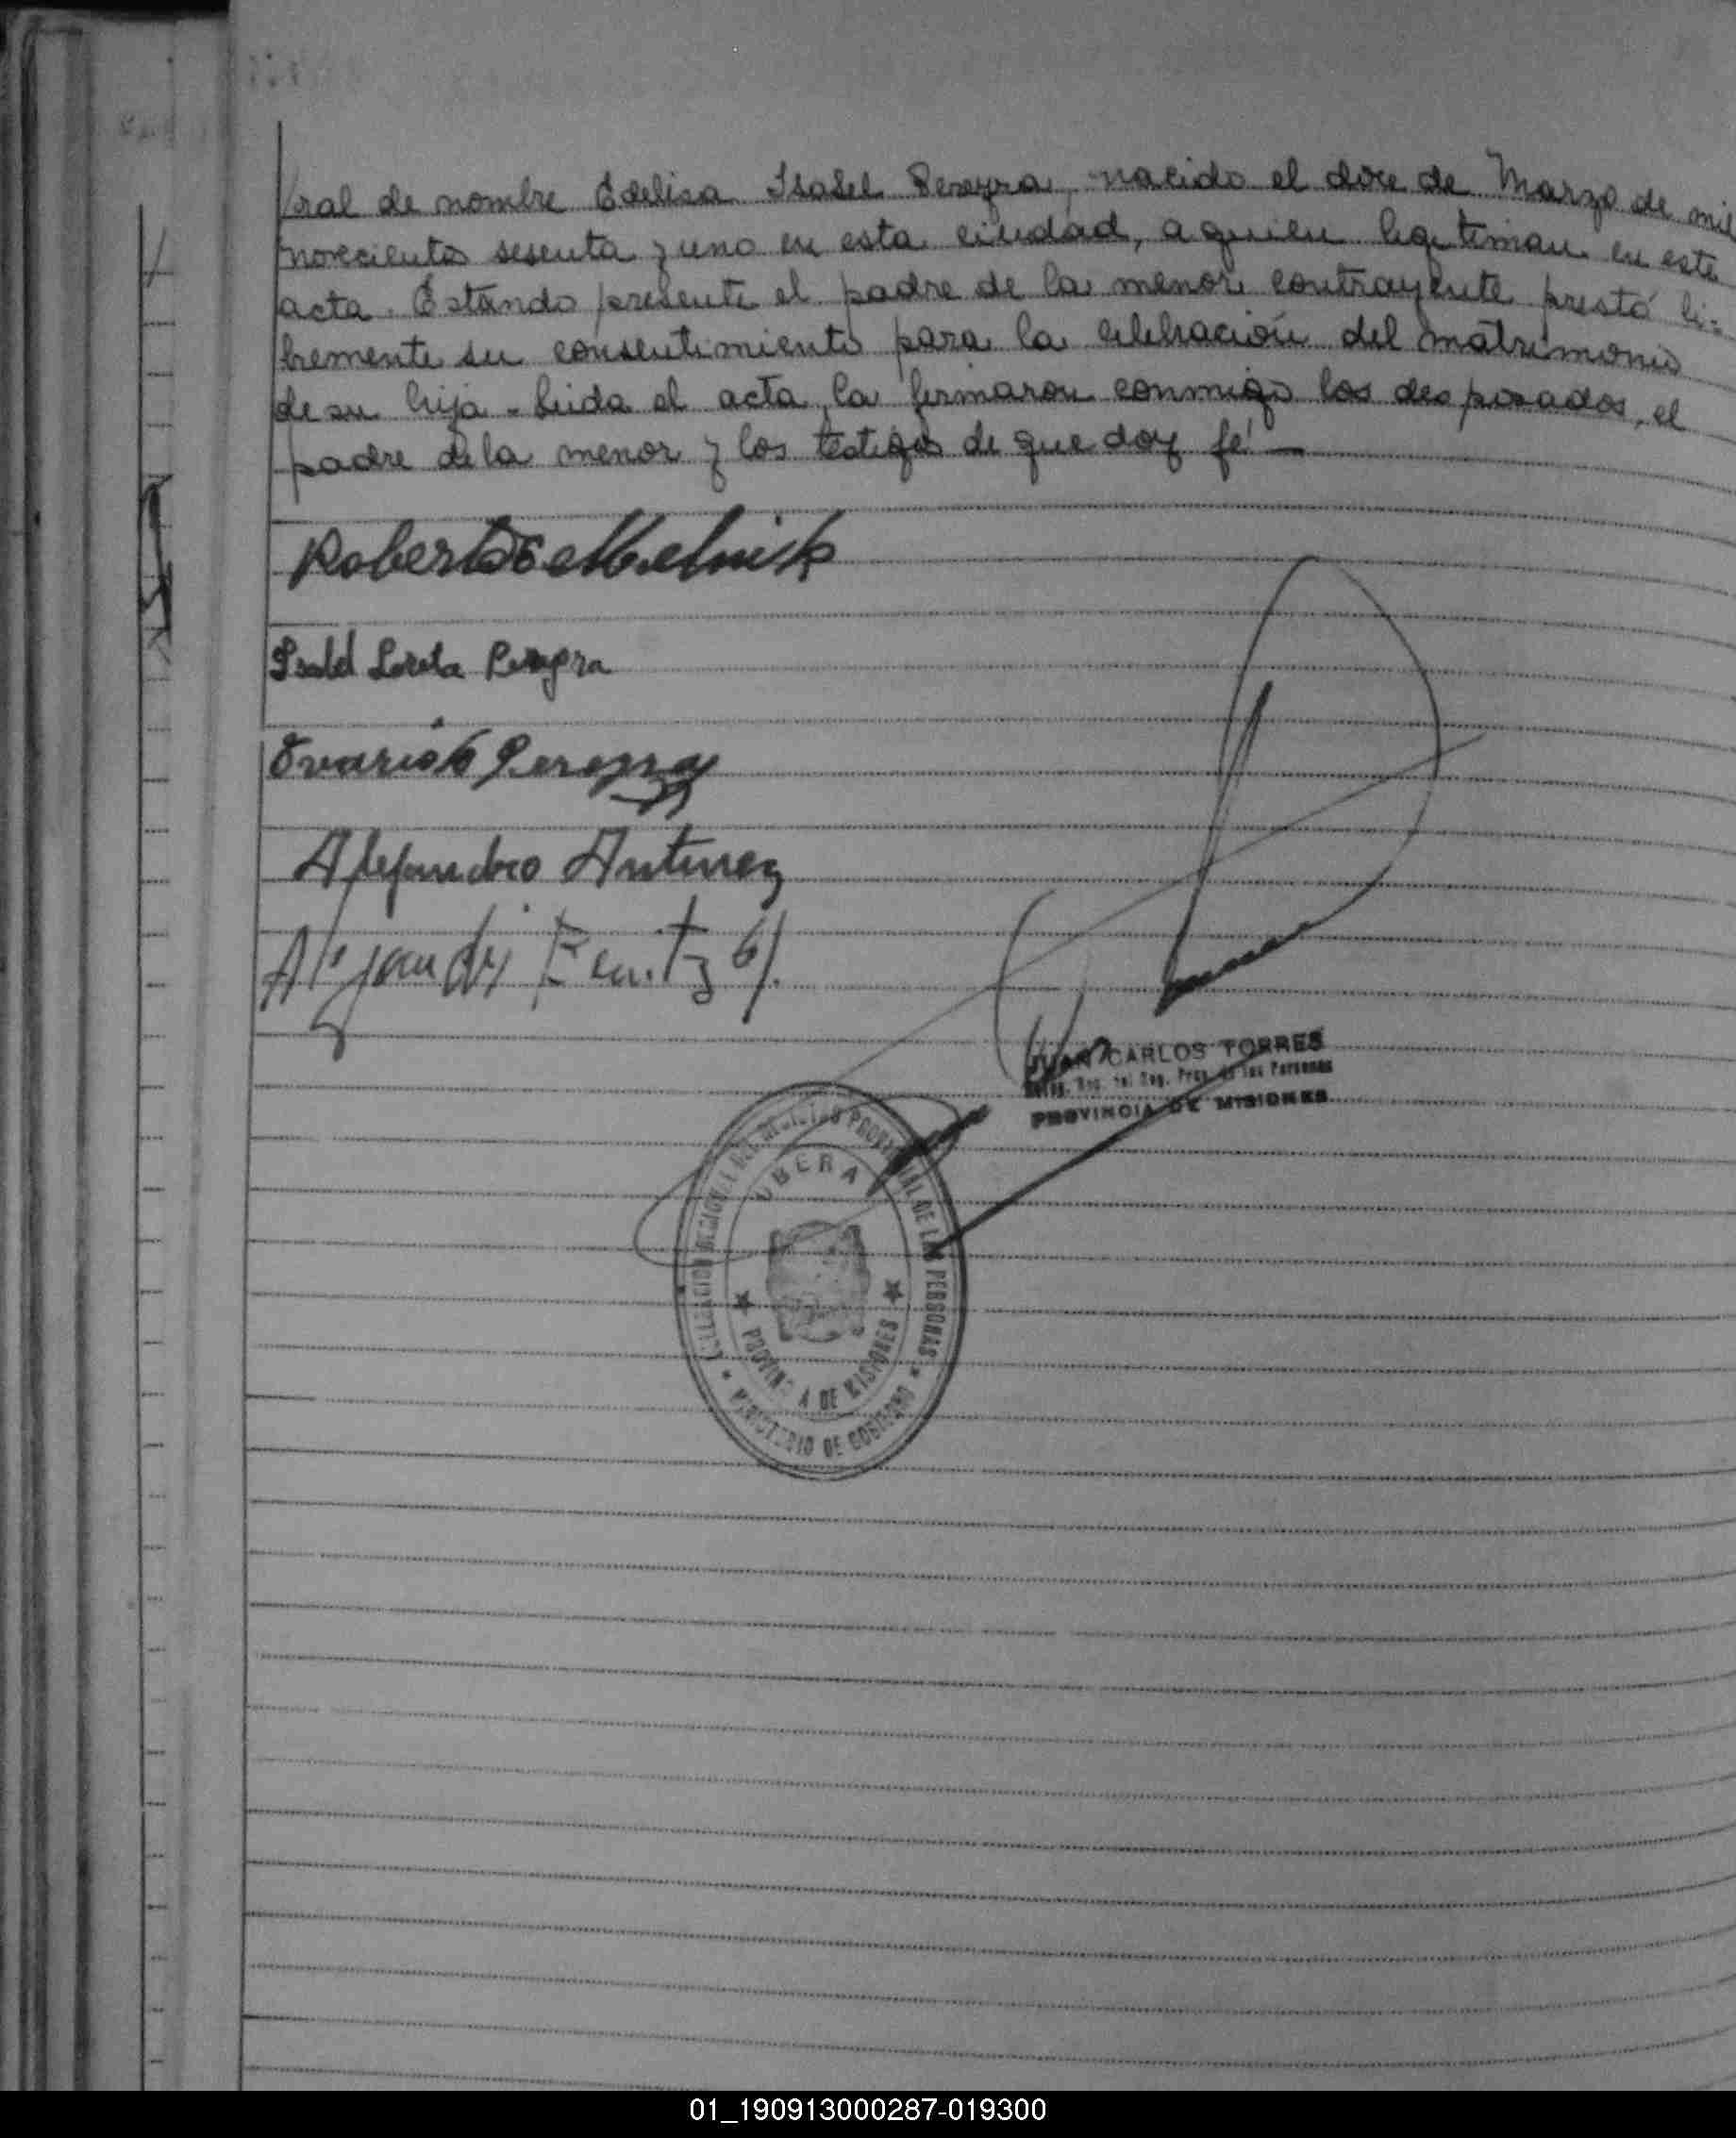 ral de nombre Edelisa Isabel Pereyra, nacido el doce de Marzo de mil
novecientos sesenta y uno en esta ciudad, a quien legitiman en este
acta. Estando presente el padre de la menor contrayente prestó li-
bremente su consentimiento para la celebración del matrimonio
de su hija. Leida el acta, la firmaron conmigo los desposados, el
padre de la menor y los testigos de que doy fé. —
Roberto E Melnik
Isabel Loreta Pereyra
Evaristo Pereyra
Alejandro Antunez
JUAN CARLOS TORRES
Reg. Prov. de las Personas
PROVINCIA DE MISIONES
REGISTRO PROVINCIAL DE LAS PERSONAS
OBERA
PROVINCIA DE MISIONES
MINISTERIO DE GOBIERNO
01_190913000287-019300